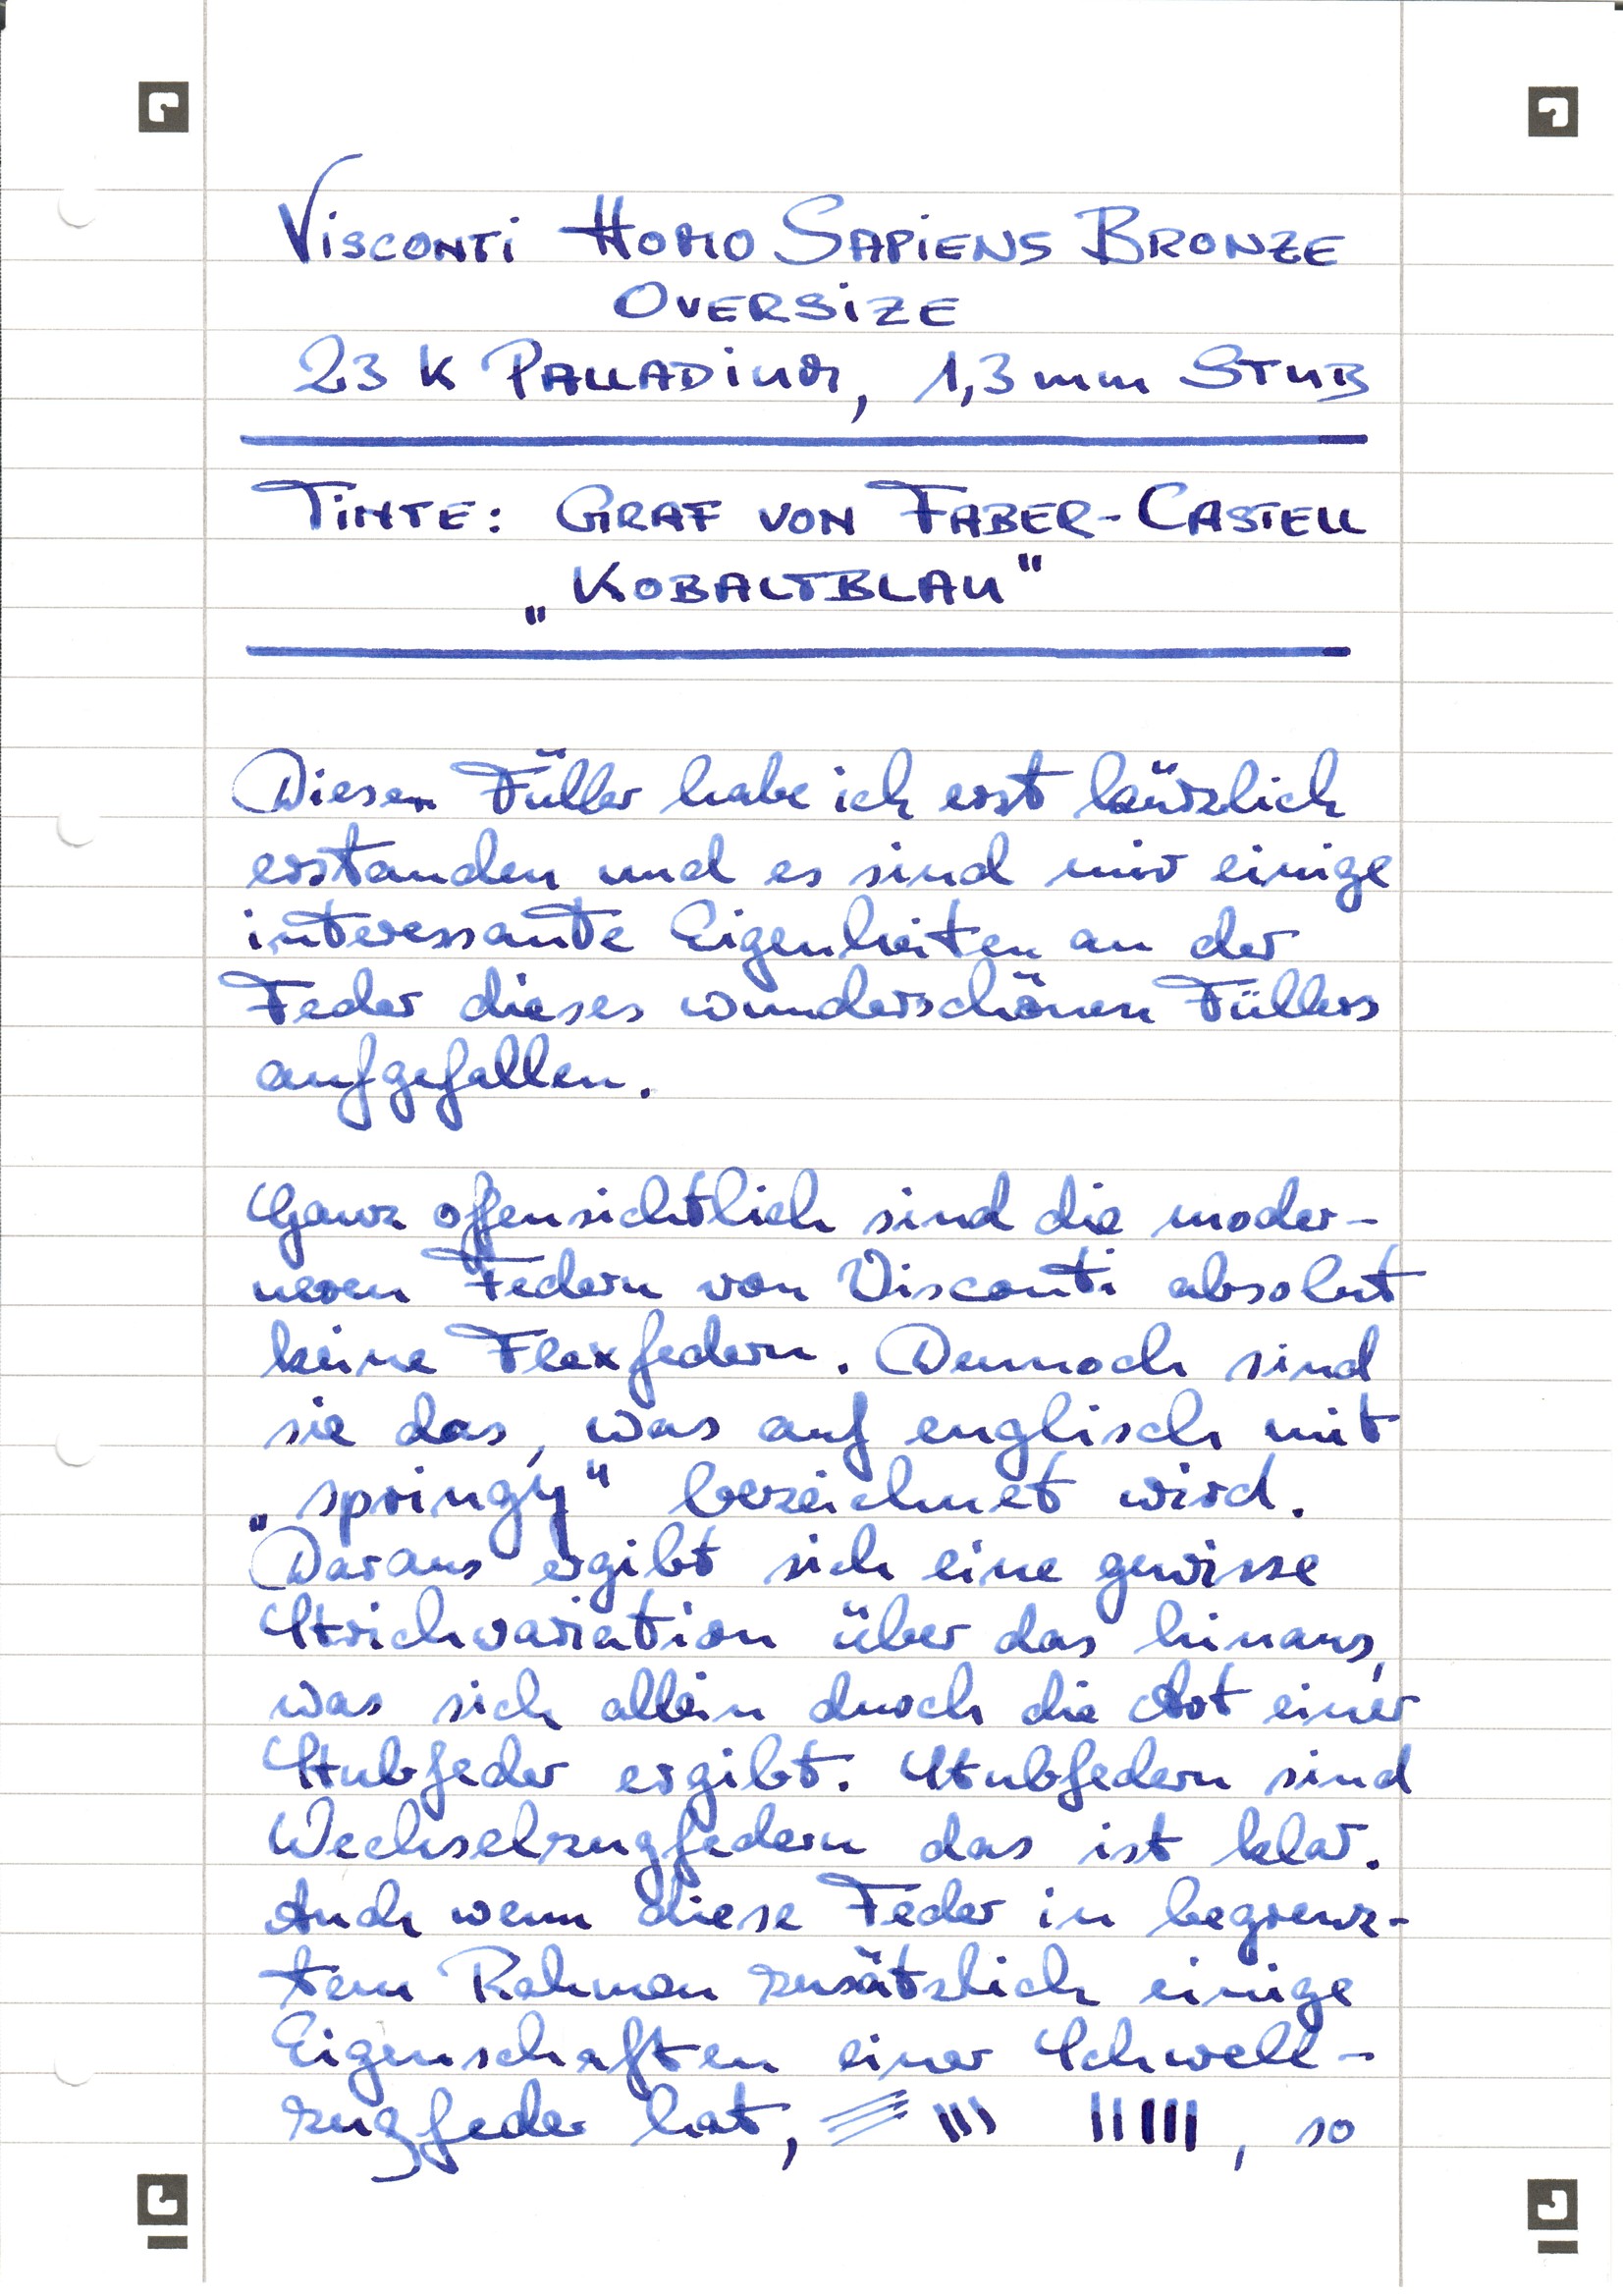 Visconti Homo Sapiens Bronze
Oversize
23 K Palladium, 1,3 mm Stub
Tinte: Graf von Faber-Castell
„Kobaltblau"
Diesen Füller habe ich erst kürzlich
erstanden und es sind mir einige
interessante Eigenheiten an der
Feder dieses wunderschönen Füllers
aufgefallen.
Ganz offensichtlich sind die moder-
neren Federn von Visconti absolut
keine Flexfedern. Dennoch sind
sie das, was auf englisch mit
„springy" bezeichnet wird.
Daraus ergibt sich eine gewisse
Strichvariation über das hinaus,
was sich allein durch die Art einer
Stubfeder ergibt. Stubfedern sind
Wechselzugfedern das ist klar.
Auch wenn diese Feder in begrenz-
tem Rahmen zusätzlich einige
Eigenschaften einer Schwell-
zugfeder hat, , so